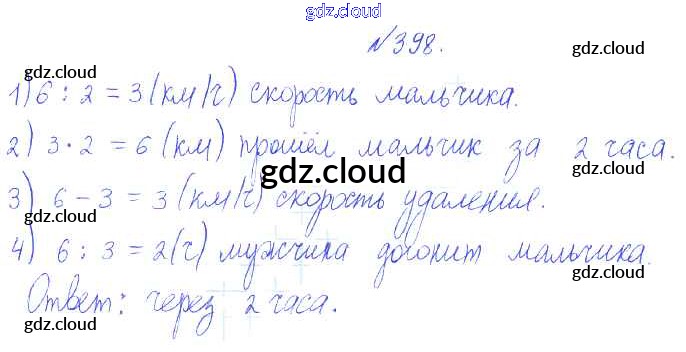 gdz.cloud
№398.
gdz.cloud gdz.cloud
1) 6 : 2 = 3 (км/ч) скорость мальчика.
gdz.cloud
2) 3 · 2 = 6 (км) прошёл мальчик за 2 часа.
gdz.cloud
3) 6 - 3 = 3 (км/ч) скорость удаления.
gdz.cloud gdz.cloud
4) 6 : 3 = 2 (ч) мужчина догонит мальчика.
gdz.cloud gdz.cloud
Ответ: через 2 часа.
gdz.cloud
gdz.cloud